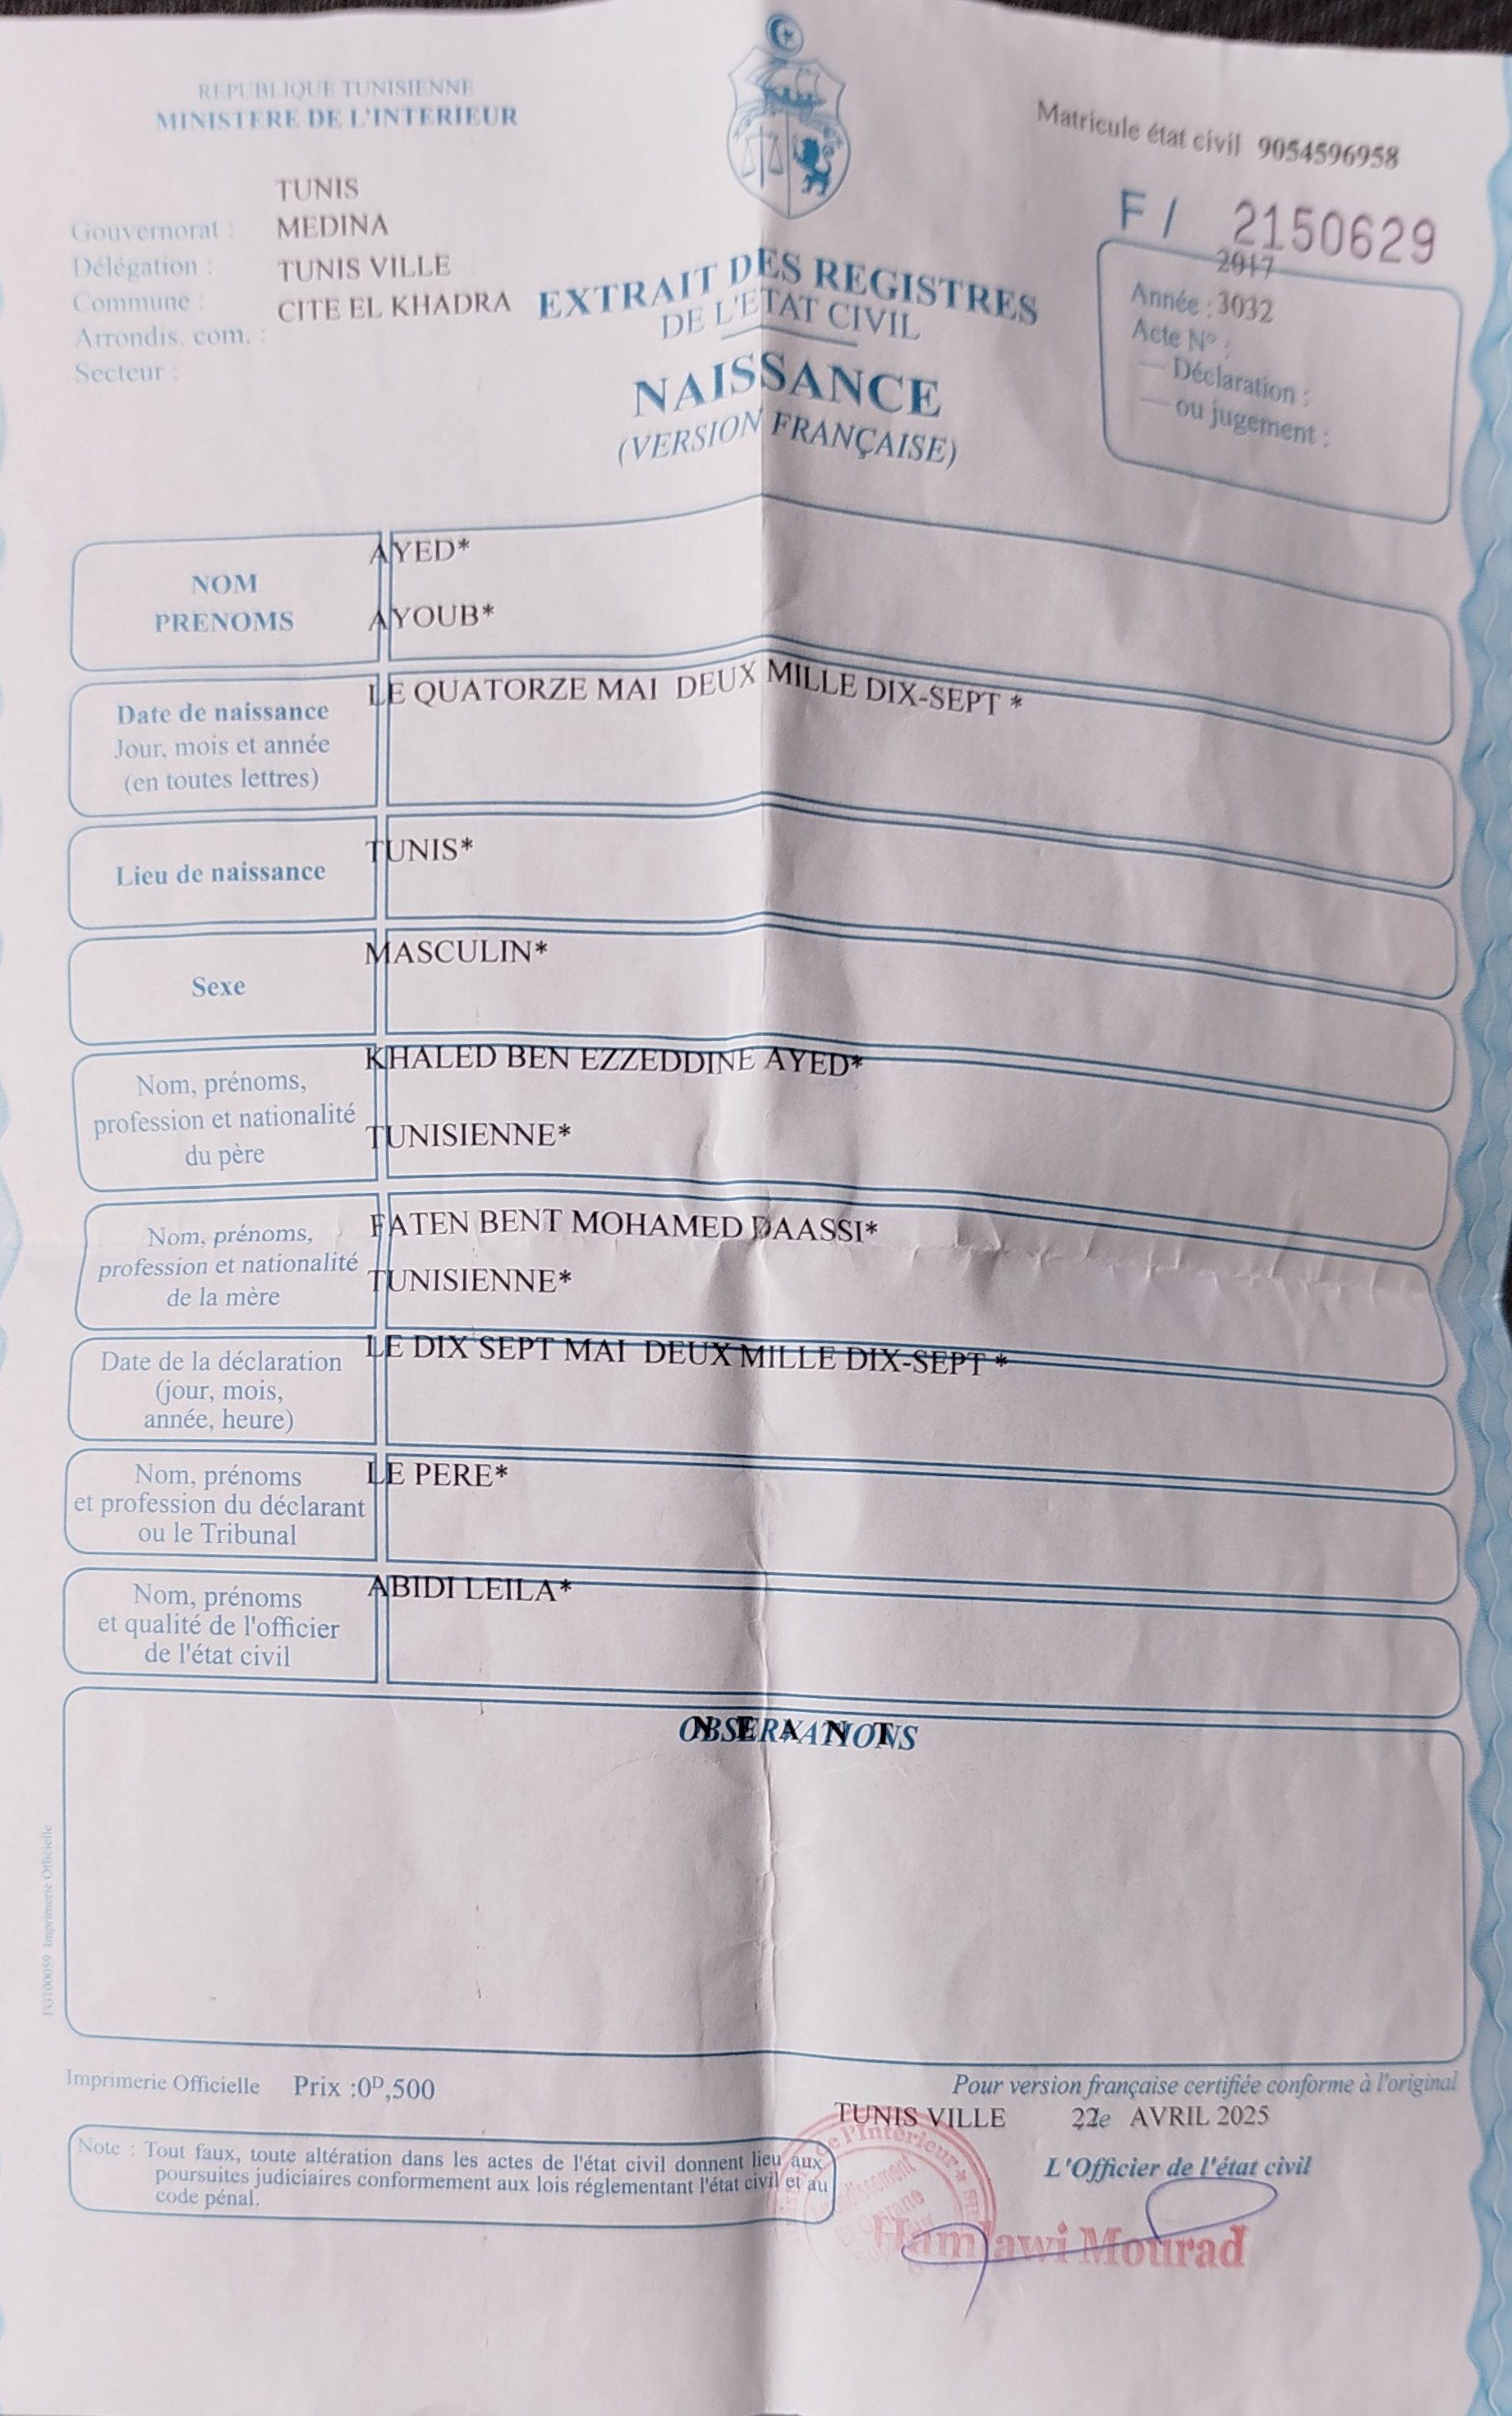 REPUBLIQUE TUNISIENNE
MINISTERE DE L'INTERIEUR
Matricule état civil 9054596958
F / 2150629
TUNIS
Gouvernorat : MEDINA
Délégation : TUNIS VILLE
Commune : CITE EL KHADRA
Arrondis. com. :
Secteur :
EXTRAIT DES REGISTRES
DE L'ETAT CIVIL
NAISSANCE
(VERSION FRANÇAISE)
2017
Année : 3032
Acte N° :
— Déclaration :
— ou jugement :
NOM
PRENOMS
AYED*
AYOUB*
Date de naissance
Jour, mois et année
(en toutes lettres)
LE QUATORZE MAI DEUX MILLE DIX-SEPT *
Lieu de naissance
TUNIS*
Sexe
MASCULIN*
Nom, prénoms,
profession et nationalité
du père
KHALED BEN EZZEDDINE AYED*
TUNISIENNE*
Nom, prénoms,
profession et nationalité
de la mère
FATEN BENT MOHAMED DAASSI*
TUNISIENNE*
Date de la déclaration
(jour, mois,
année, heure)
LE DIX SEPT MAI DEUX MILLE DIX-SEPT *
Nom, prénoms
et profession du déclarant
ou le Tribunal
LE PERE*
Nom, prénoms
et qualité de l'officier
de l'état civil
ABIDI LEILA*
OBSERVATIONS
N E A N T
FG100059 Imprimerie Officielle
Imprimerie Officielle Prix :0D,500
Pour version française certifiée conforme à l'original
TUNIS VILLE 22 le AVRIL 2025
L'Officier de l'état civil
Note : Tout faux, toute altération dans les actes de l'état civil donnent lieu aux
poursuites judiciaires conformement aux lois réglementant l'état civil et au
code pénal.
de l'Intérieur
Hamlawi Mourad